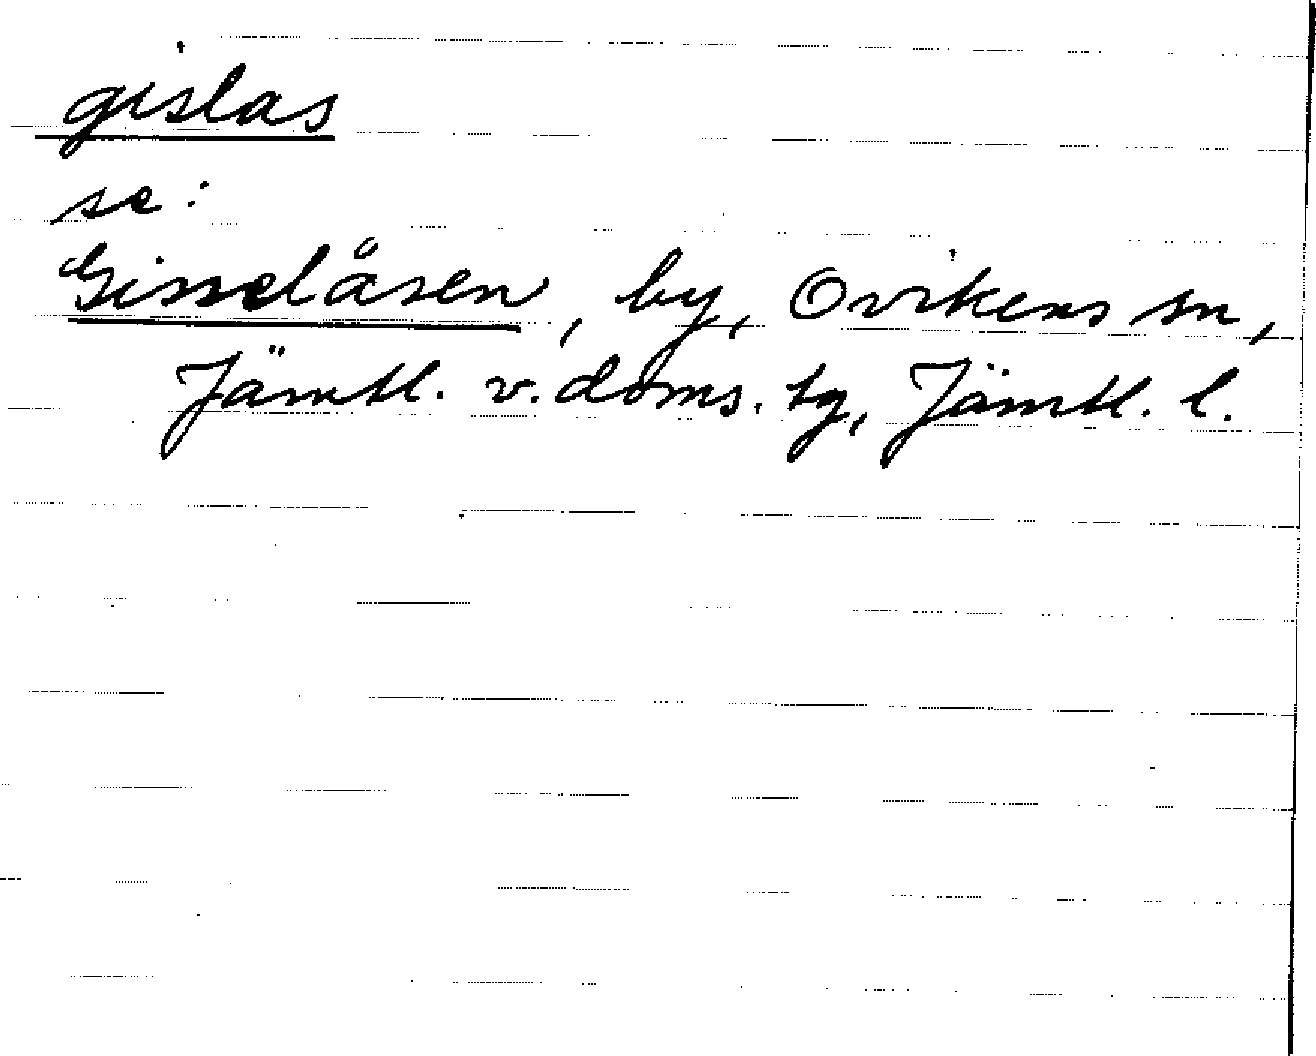 gislas
se:
Gisselåsen, by, Ovikens sn,
Jämtl. v. doms. tg, Jämtl. l.